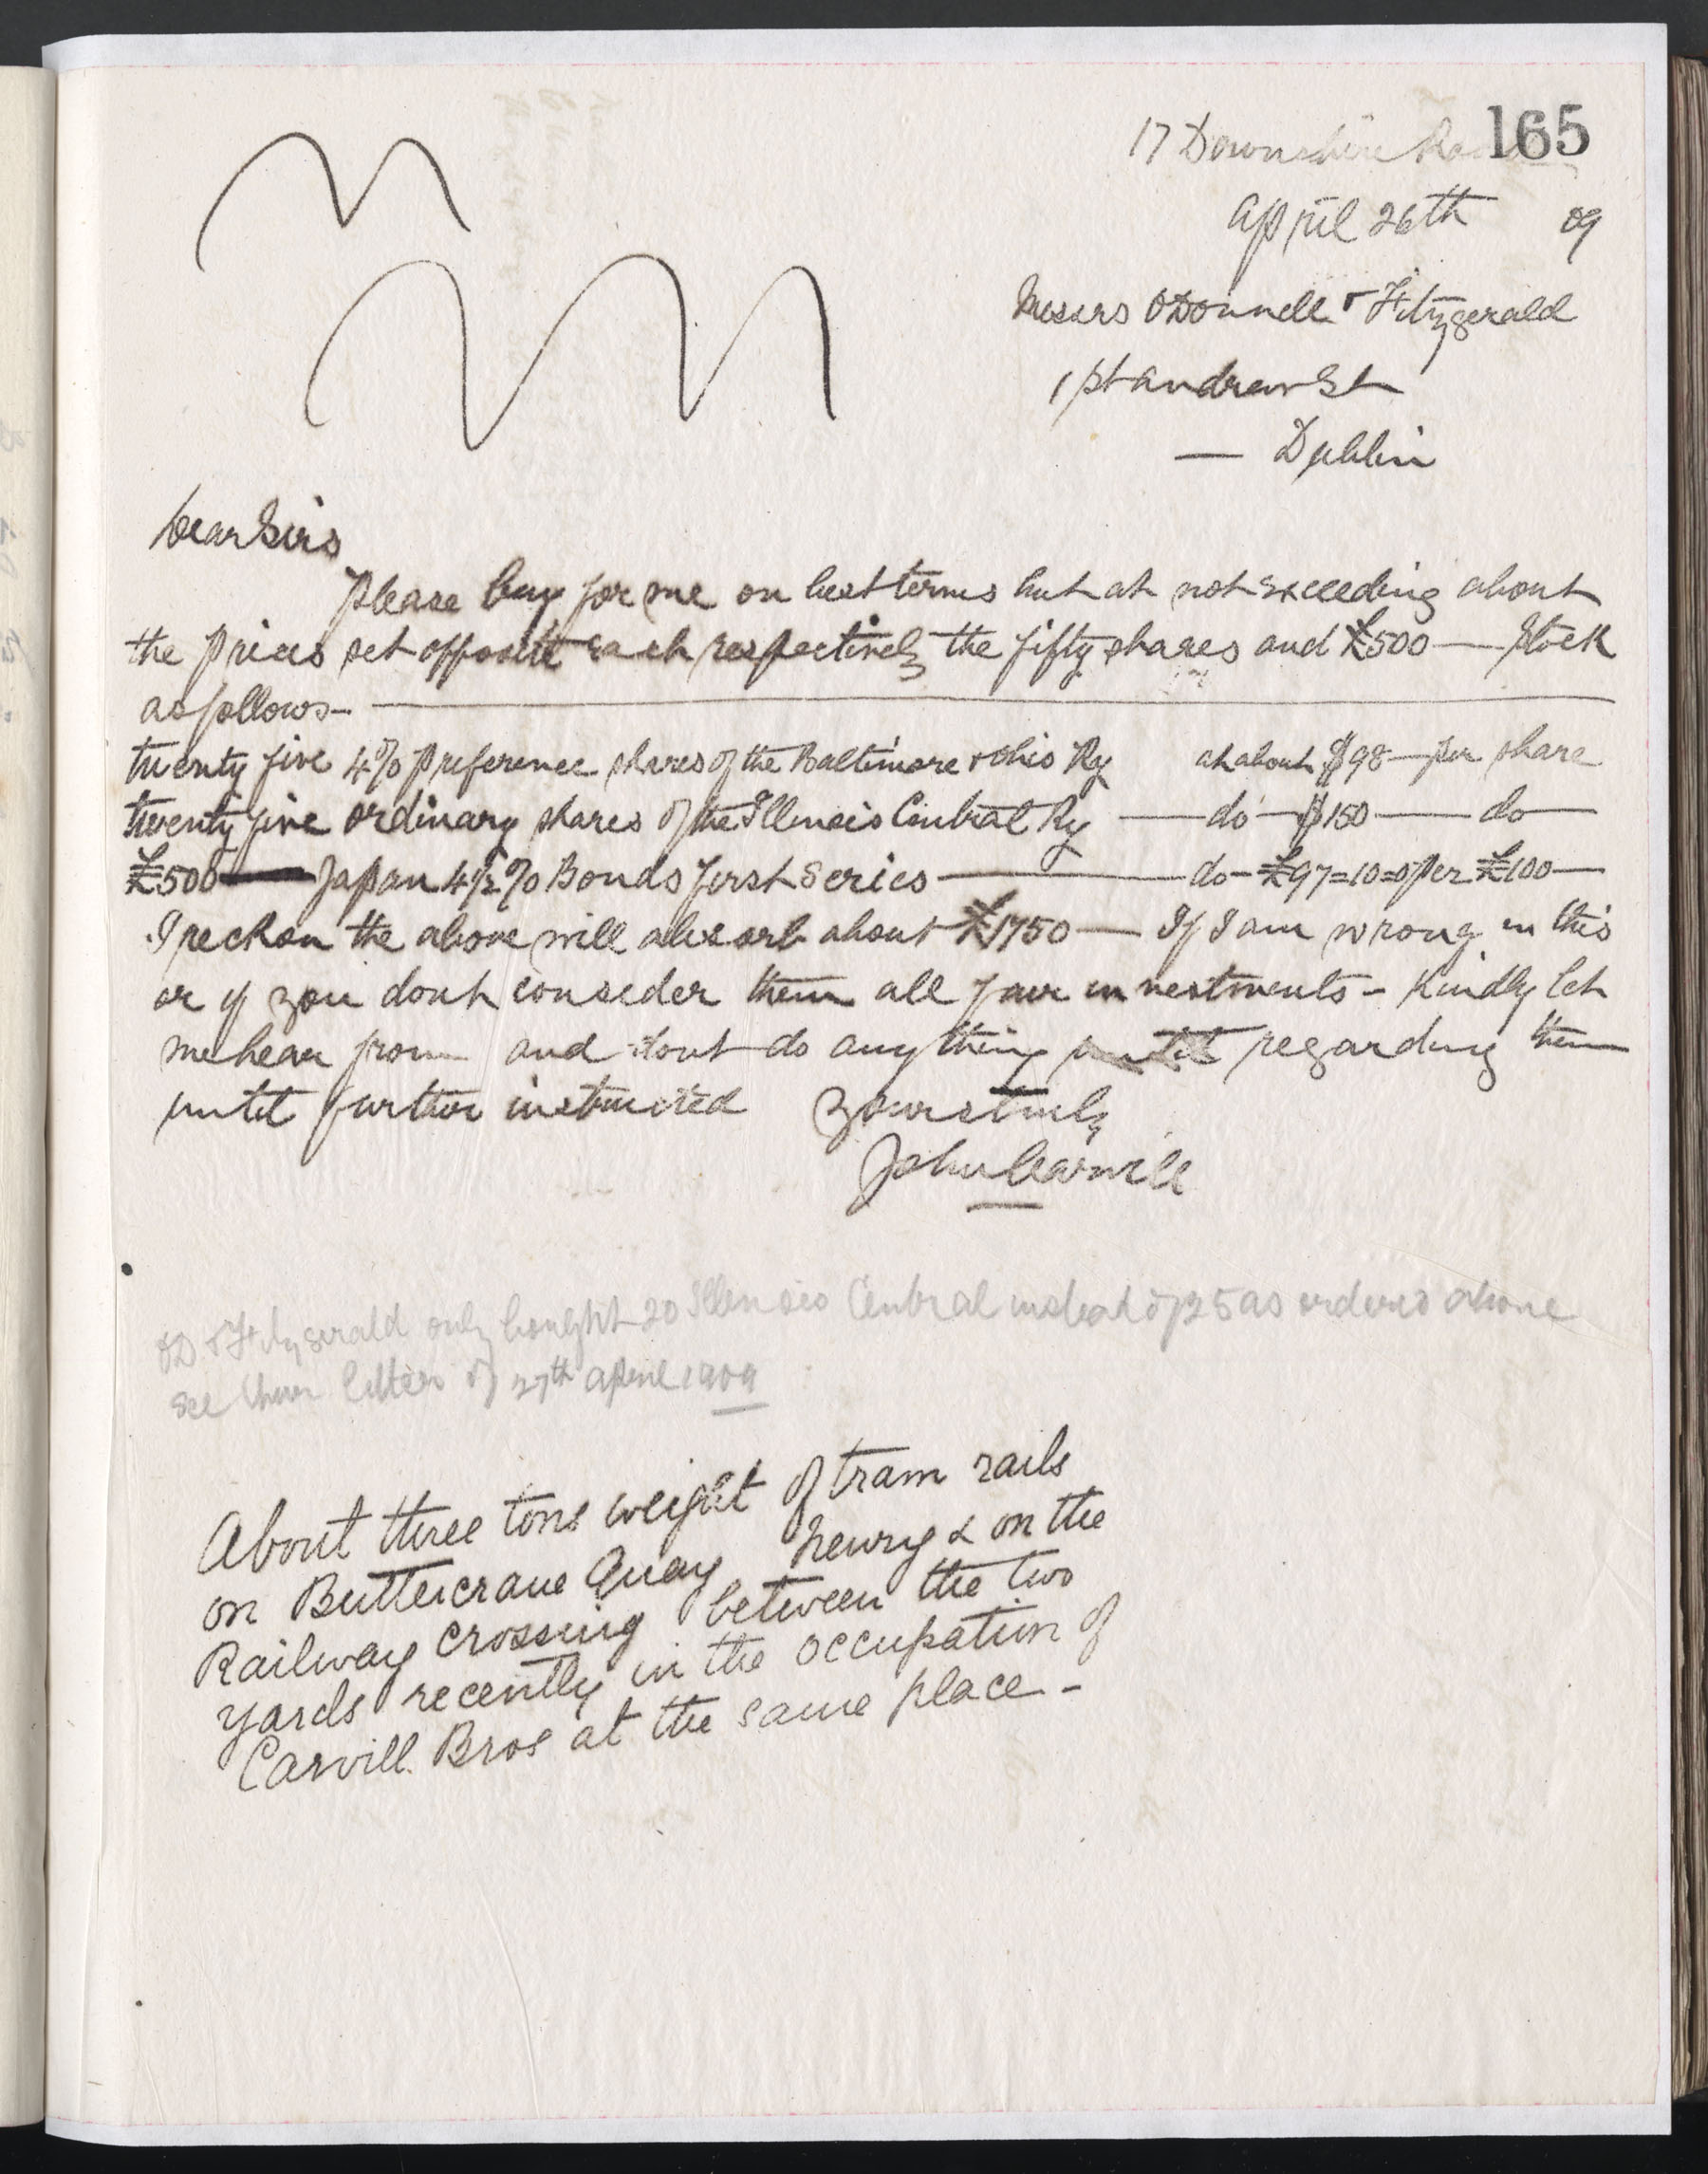 165
17 Downshire Road
April 26th 09
Messrs O'Donnell & Fitzgerald
1 St Andrew St
— Dublin
Dear Sirs
Please buy for me on best terms but at not exceeding about
the prices set opposite each respectively the fifty shares and £500 — Stock
as follows —
twenty five 4% preference shares of the Baltimore & Ohio Ry at about $98 — per share
twenty five ordinary shares of the Illinois Central Ry — do — $150 — do —
£500 — Japan 4½% Bonds first Series — do — £97=10=0 per £100 —
I reckon the above will absorb about £1750 — If I am wrong in this
or if you dont consider them all fair investments — Kindly let
me hear from and dont do anything until regarding them
until further instructed yours truly
John Carvill
OD & Fitzgerald only bought 20 Illinois Central instead of 25 as ordered above
see their letter of 27th April 1909
About three tons weight of tram rails
on Buttercrane Quay Newry & on the
Railway crossing between the two
yards recently in the occupation of
Carvill Bros at the same place -